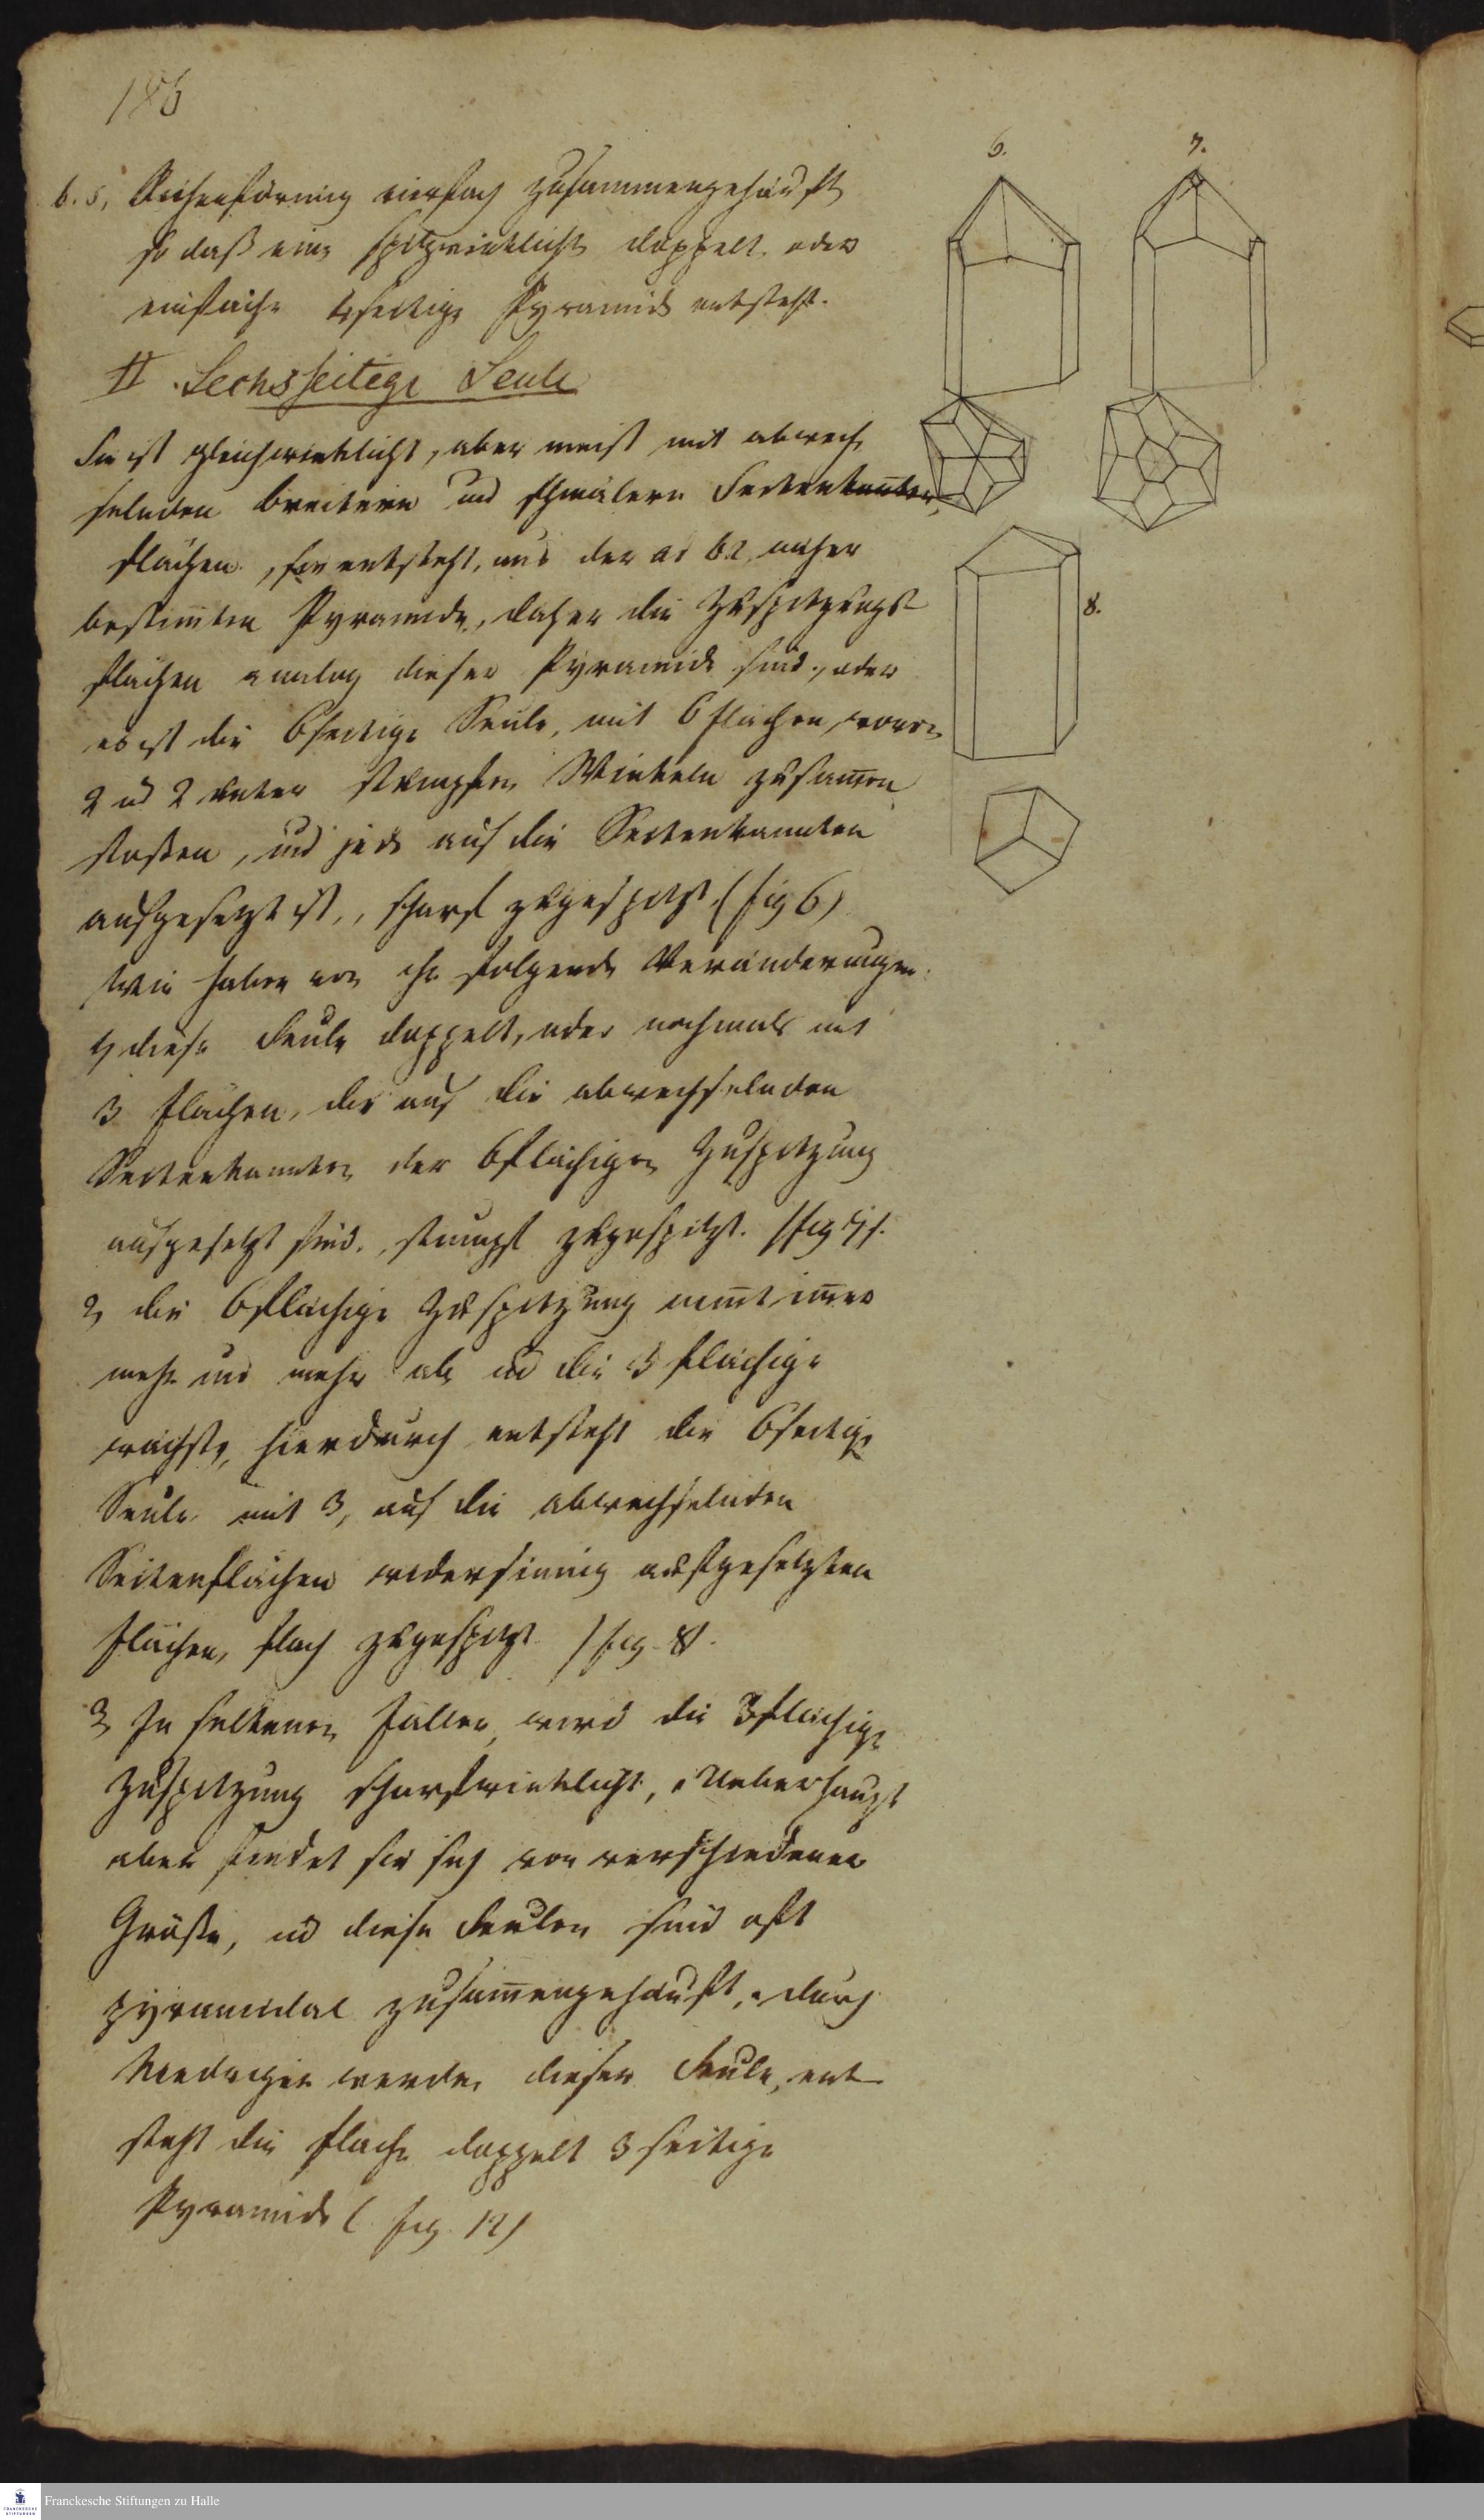 186
6.
7.
b. 5, Reihenförmig vierfach zusammengehäuft
so daß eine spitzwinklichte doppelt oder
einfache 6seitige Pyramide entsteht.
II. Sechsseitige Seule
Sie ist gleichwinklicht, aber meist mit abwech
selnden breitern und schmälern Seitenkannten,
flächen, sie entsteht, aus der ad b2 näher
bestim̅ten Pyramide, daher die Zuspitzungs
flächen analog dieser Pyramide sind, oder
8.
es ist die 6seitige Seule, mit 6 flächen, wovon
2 ud 2 unter stumpfen Winkeln zusam̅en
stoßen, und jede auf die Seitenkannten
aufgesetzt ist, scharf zugespitzt (fig 6)
Wir haben von ihr folgende Veränderungen.
1, diese Seule doppelt, oder nochmals mit
3 flächen, die auf die abwechselnden
Seitenkannten der 6flächigen Zuspitzung
aufgesetzt sind, stumpf zugespitzt. (fig 7).
2, die 6flächige Zuspitzung nim̅t im̅er
mehr und mehr ab ud die 3 flächige
wächst, hierdurch entsteht die 6seitige
Seule mit 3, auf die abwechselnden
Seitenflächen widersinnig aufgesetzten
flächen, flach zugespitzt (fig. 8).
3, In seltenen Fällen wird die 3flächige
Zuspitzung scharfwinklicht, Ueberhaupt
aber findet sie sich von verschiedener
Größe, ud diese Seulen sind oft
pyramidal zusam̅engehäuft, durch
Niedriger werden dieser Seule, ent
steht die flache doppelt 3 seitige
Pyramide (fig. 12)
Franckesche Stiftungen zu Halle